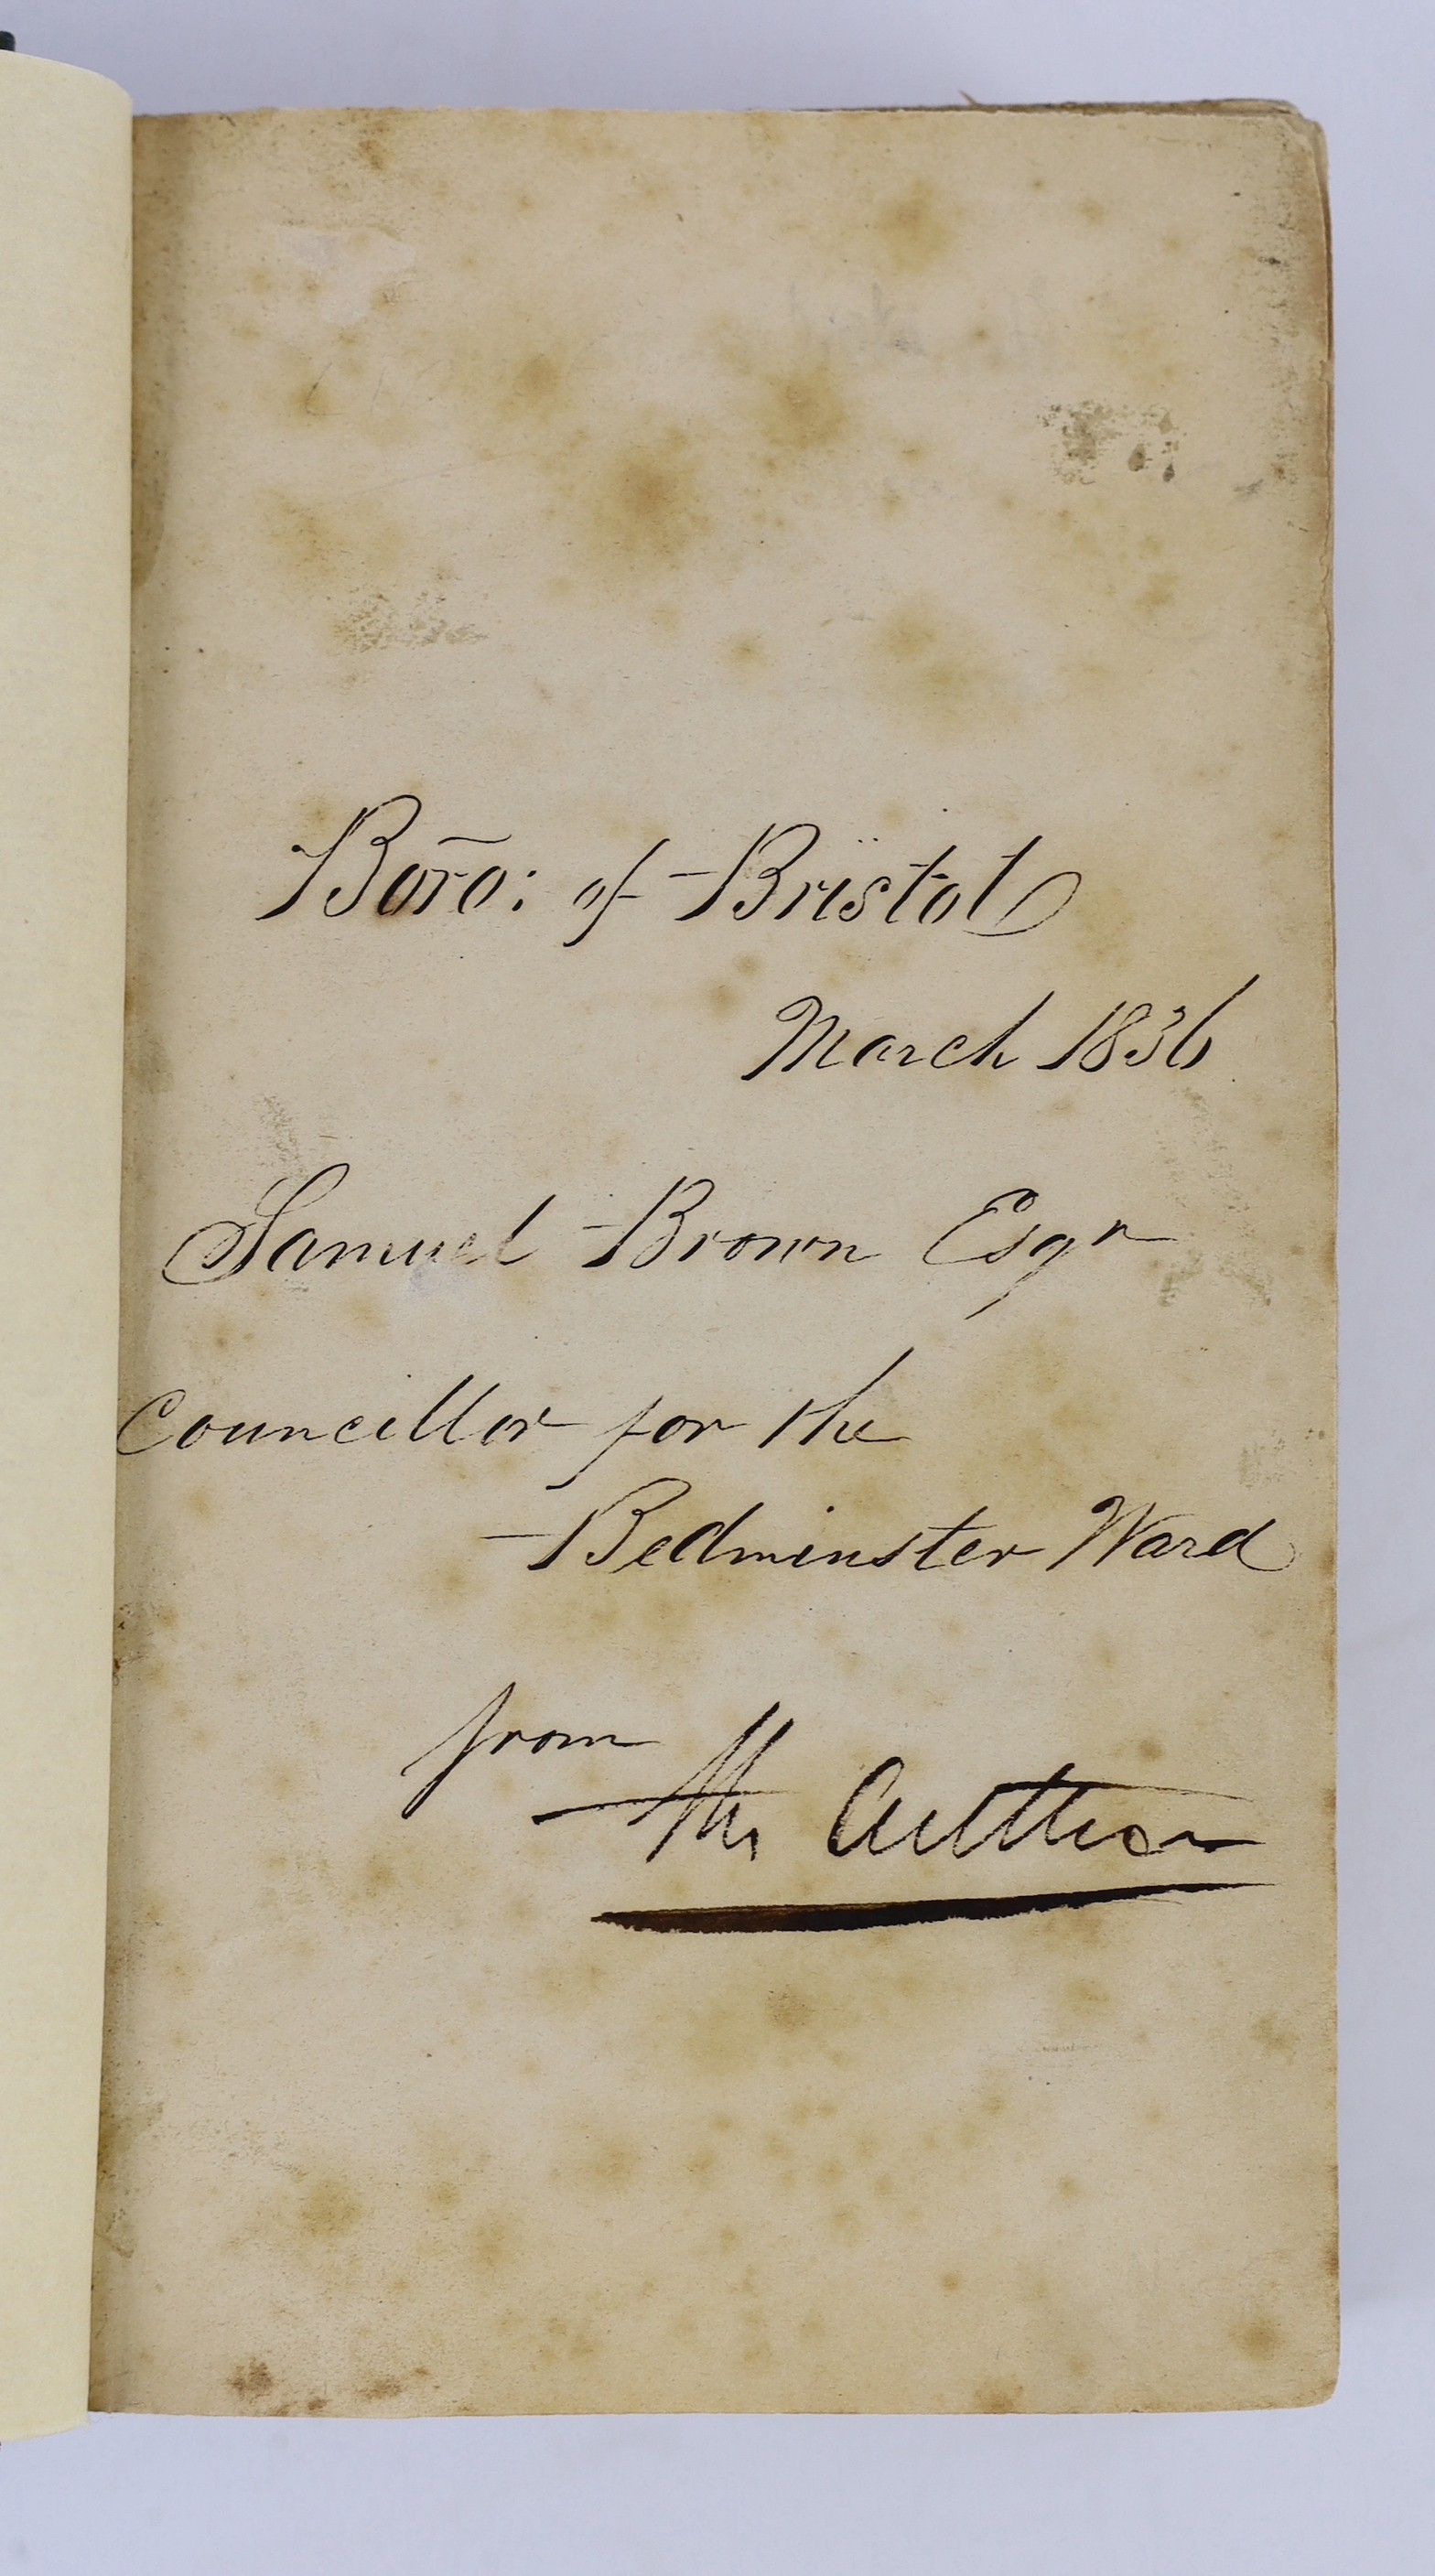 Boro: of Bristol
March 1836
Samuel Brown Esqr
Councillor for the
Bedminster Ward
from
the Author